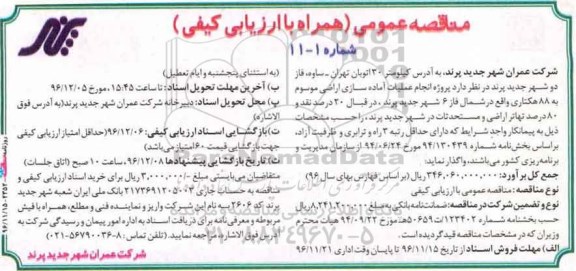 مناقصه عمومی (همراه با ارزیابی کیفی)
شماره ۱-۱۱
شرکت عمران شهر جدید پرند، به آدرس کیلومتر ۳۰ اتوبان تهران - ساوه، فاز
دو شهر جدید پرند در نظر دارد پروژه انجام عملیات آماده سازی اراضی موسوم
به ۸۸ هکتاری واقع در شمال فاز ۶ شهر جدید پرند، در قبال ۲۰ درصد نقد و
۸۰ درصد تهاتر اراضی و مستحدثات در شهر جدید پرند، را حسب مشخصات
ذیل به پیمانکار واجد شرایط که دارای حداقل رتبه ۳ راه و ترابری و ظرفیت آزاد،
براساس بخش‌نامه شماره ۹۴/۱۳۰۴۳۹ مورخ ۹۴/۰۶/۲۴ از سازمان مدیریت و
برنامه‌ریزی کشور می‌باشند، واگذار نماید:
جمع کل برآورد: ۳۴۶،۰۶۰،۰۰۰،۰۰۰ ریال (بر اساس فهارس بهای سال ۹۶)
نوع مناقصه: مناقصه عمومی با ارزیابی کیفی
نوع و تضمین شرکت در مناقصه: ضمانت‌نامه بانکی به مبلغ ۸،۲۴۱،۲۰۰،۰۰۰ ریال بر
حسب بخشنامه شماره ۱۲۳۴۰۲/ت۵۰۶۵۹هـ مورخ ۹۴/۰۹/۲۲ هیات محترم
وزیران که در مشخصات مناقصه قید گردیده است.
الف) مهلت فروش اسناد: از تاریخ ۹۶/۱۱/۱۵ تا پایان وقت اداری ۹۶/۱۱/۲۱
(به استثنای پنجشنبه و ایام تعطیل)
ب) آخرین مهلت تحویل اسناد: تا ساعت ۱۵:۴۵ مورخ ۹۶/۱۲/۰۵
پ) محل تحویل اسناد: دبیرخانه شرکت عمران شهر جدید پرند (به آدرس فوق
الاشاره)
ت) بازگشایی اسناد ارزیابی کیفی: ۹۶/۱۲/۰۶ (حداقل امتیاز ارزیابی کیفی
جهت بازگشایی قیمت ۶۰ امتیاز می‌باشد)
ث) تاریخ بازگشایی پیشنهادها: ۹۶/۱۲/۰۸ ساعت ۱۰ صبح (اتاق جلسات)
متقاضیان می‌بایستی مبلغ ۳،۰۰۰،۰۰۰ ریال برای خرید اسناد ارزیابی کیفی و
مناقصه به حساب جاری ۲۱۷۳۶۹۱۲۰۵۰۰۴ بانک ملی ایران شعبه شهر جدید
پرند کد ۲۶۰۶ به نام این شرکت واریز و نماینده فنی و مطلع، همراه با فیش
مربوطه و معرفی‌نامه برای دریافت اسناد به اداره امور پیمان و رسیدگی شرکت به
آدرس فوق الاشاره مراجعه نمایید. (تلفن تماس: ۸-۵۶۷۹۰۰۳۶-۰۲۱)
شرکت عمران شهر جدید پرند